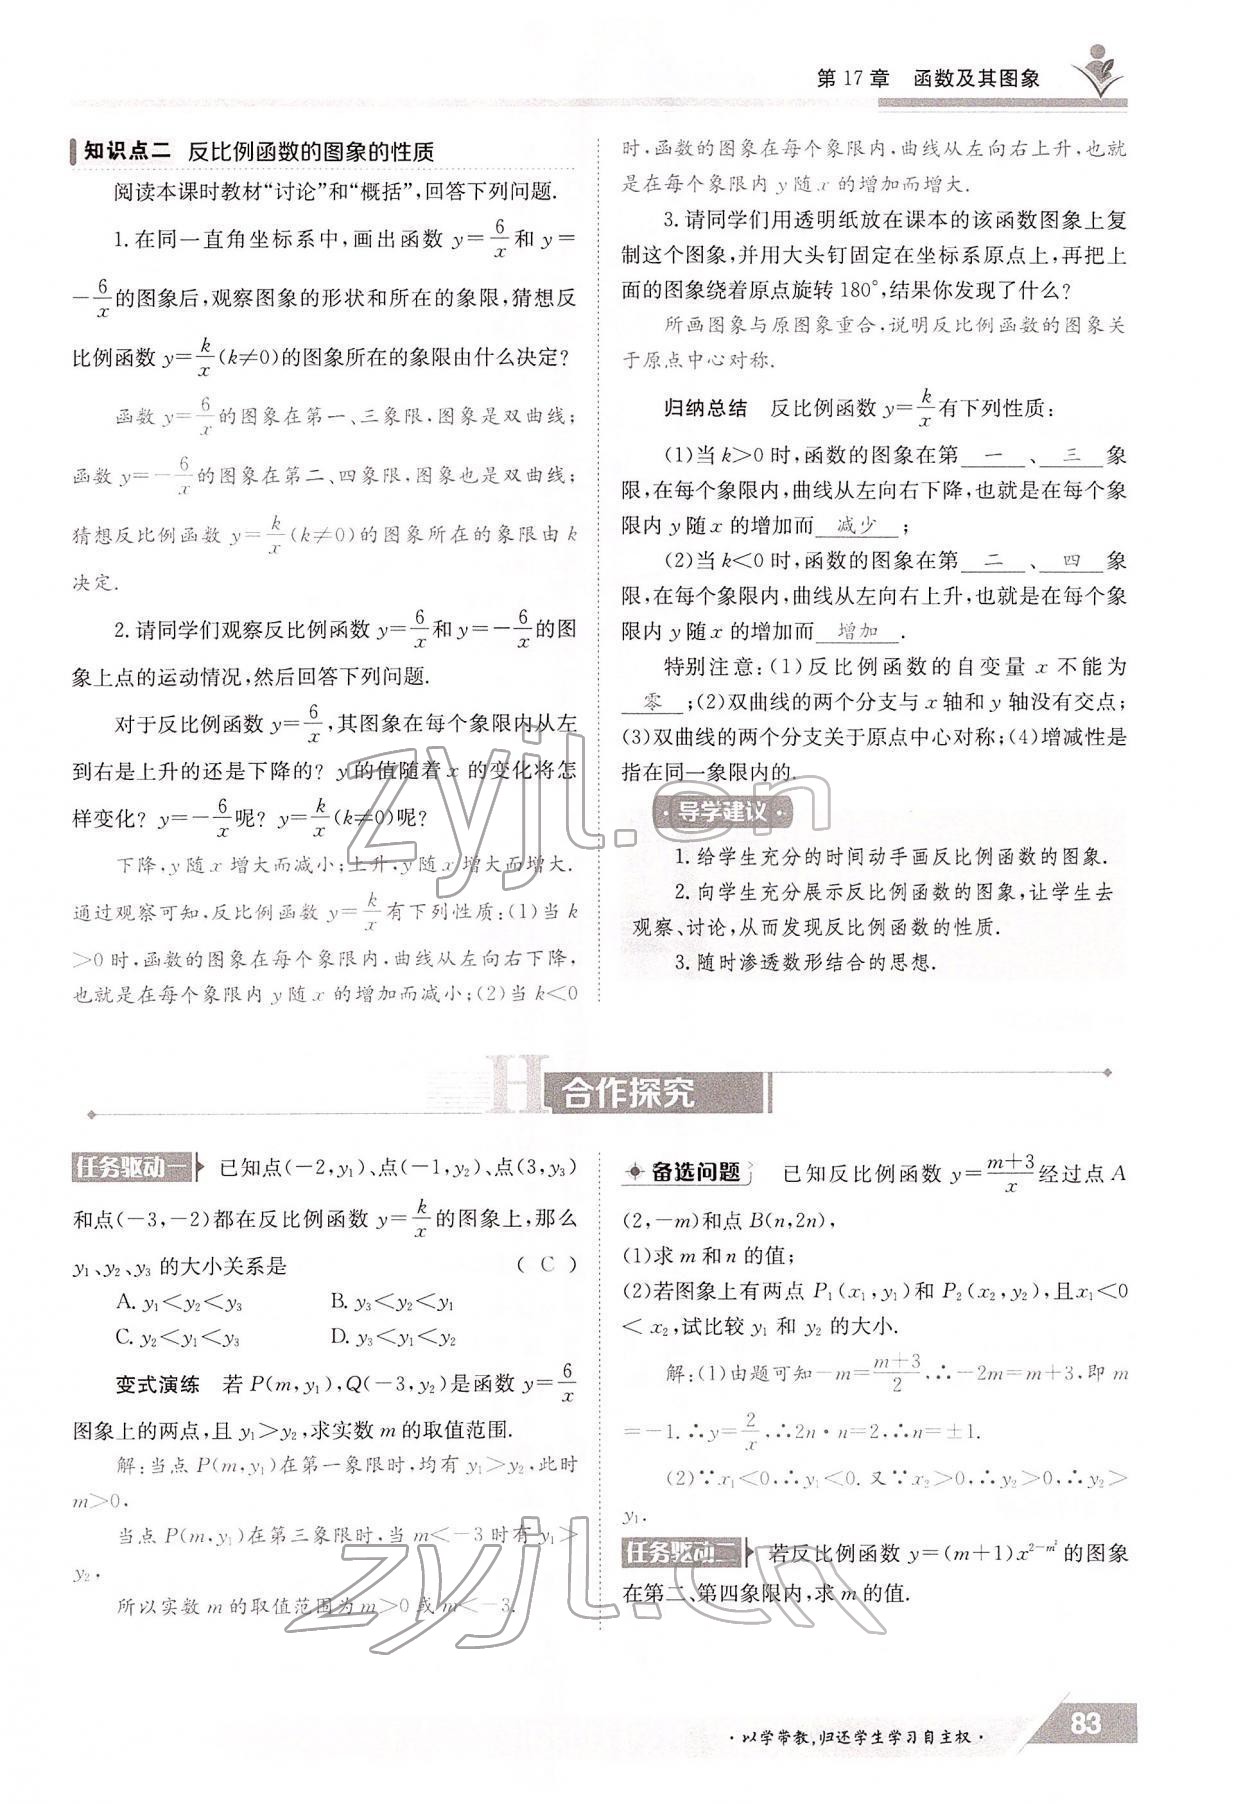 第17章 函数及其图象
知识点二 反比例函数的图象的性质
阅读本课时教材“讨论”和“概括”,回答下列问题.
1.在同一直角坐标系中,画出函数 y=6/x 和 y=
-6/x 的图象后,观察图象的形状和所在的象限,猜想反
比例函数 y=k/x (k≠0)的图象所在的象限由什么决定?
函数 y=6/x 的图象在第一、三象限,图象是双曲线;
函数 y=-6/x 的图象在第二、四象限,图象也是双曲线;
猜想反比例函数 y=k/x (k≠0)的图象所在的象限由 k
决定.
2.请同学们观察反比例函数 y=6/x 和 y=-6/x 的图
象上点的运动情况,然后回答下列问题.
对于反比例函数 y=6/x,其图象在每个象限内从左
到右是上升的还是下降的? y 的值随着 x 的变化将怎
样变化? y=-6/x 呢? y=k/x (k≠0)呢?
下降,y 随 x 增大而减小;上升,y 随 x 增大而增大.
通过观察可知,反比例函数 y=k/x 有下列性质:(1)当 k
>0 时,函数的图象在每个象限内,曲线从左向右下降,
也就是在每个象限内 y 随 x 的增加而减小;(2)当 k<0
时,函数的图象在每个象限内,曲线从左向右上升,也就
是在每个象限内 y 随 x 的增加而增大.
3.请同学们用透明纸放在课本的该函数图象上复
制这个图象,并用大头钉固定在坐标系原点上,再把上
面的图象绕着原点旋转 180°,结果你发现了什么?
所画图象与原图象重合,说明反比例函数的图象关
于原点中心对称.
归纳总结 反比例函数 y=k/x 有下列性质:
(1)当 k>0 时,函数的图象在第 一 、 三 象
限,在每个象限内,曲线从左向右下降,也就是在每个象
限内 y 随 x 的增加而 减少 ;
(2)当 k<0 时,函数的图象在第 二 、 四 象
限,在每个象限内,曲线从左向右上升,也就是在每个象
限内 y 随 x 的增加而 增加 .
特别注意:(1)反比例函数的自变量 x 不能为
零 ;(2)双曲线的两个分支与 x 轴和 y 轴没有交点;
(3)双曲线的两个分支关于原点中心对称;(4)增减性是
指在同一象限内的.
·导学建议·
1.给学生充分的时间动手画反比例函数的图象.
2.向学生充分展示反比例函数的图象,让学生去
观察、讨论,从而发现反比例函数的性质.
3.随时渗透数形结合的思想.
H 合作探究
任务驱动一 已知点(-2,y₁)、点(-1,y₂)、点(3,y₃)
和点(-3,-2)都在反比例函数 y=k/x 的图象上,那么
y₁、y₂、y₃ 的大小关系是 ( C )
A. y₁<y₂<y₃ B. y₃<y₂<y₁
C. y₂<y₁<y₃ D. y₃<y₁<y₂
变式演练 若 P(m,y₁),Q(-3,y₂)是函数 y=6/x
图象上的两点,且 y₁>y₂,求实数 m 的取值范围.
解:当点 P(m,y₁)在第一象限时,均有 y₁>y₂,此时
m>0.
当点 P(m,y₁)在第三象限时,当 m<-3 时有 y₁>
y₂.
所以实数 m 的取值范围为 m>0 或 m<-3.
备选问题 已知反比例函数 y=(m+3)/x 经过点 A
(2,-m)和点 B(n,2n),
(1)求 m 和 n 的值;
(2)若图象上有两点 P₁(x₁,y₁)和 P₂(x₂,y₂),且x₁<0
< x₂,试比较 y₁ 和 y₂ 的大小.
解:(1)由题可知-m=(m+3)/2,∴-2m=m+3,即 m
=-1.∴y=2/x,∴2n·n=2,∴n=±1.
(2)∵x₁<0,∴y₁<0.又∵x₂>0,∴y₂>0,∴y₂>
y₁.
任务驱动二 若反比例函数 y=(m+1)x^(2-m²) 的图象
在第二、第四象限内,求 m 的值.
·以学带教,归还学生学习自主权·
83
zyjl.cn
zyjl.cn